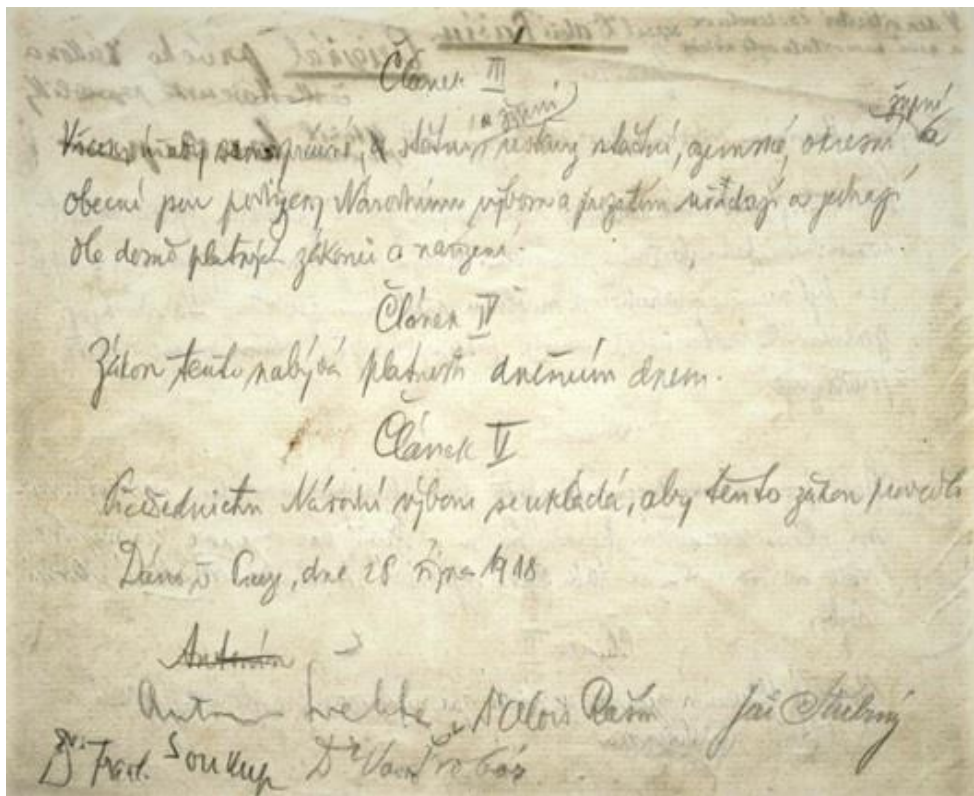 Článek III
a župní župní
úřady samosprávné, státní ústavy státní, zemské, okresní a
obecní jsou podřízeny Národnímu výboru a prozatím úřadují a jednají
dle dosud platných zákonů a nařízení.
Článek IV
Zákon tento nabývá platnosti dnešním dnem.
Článek V
Předsednictvu Národní výboru se ukládá, aby tento zákon provedlo
Dáno v Praze, dne 28 října 1918
Antonín
Antonín Švehla Dr Alois Rašín Jiří Stříbrný
Dr. Frant. Soukup Dr Vavro Šrobár